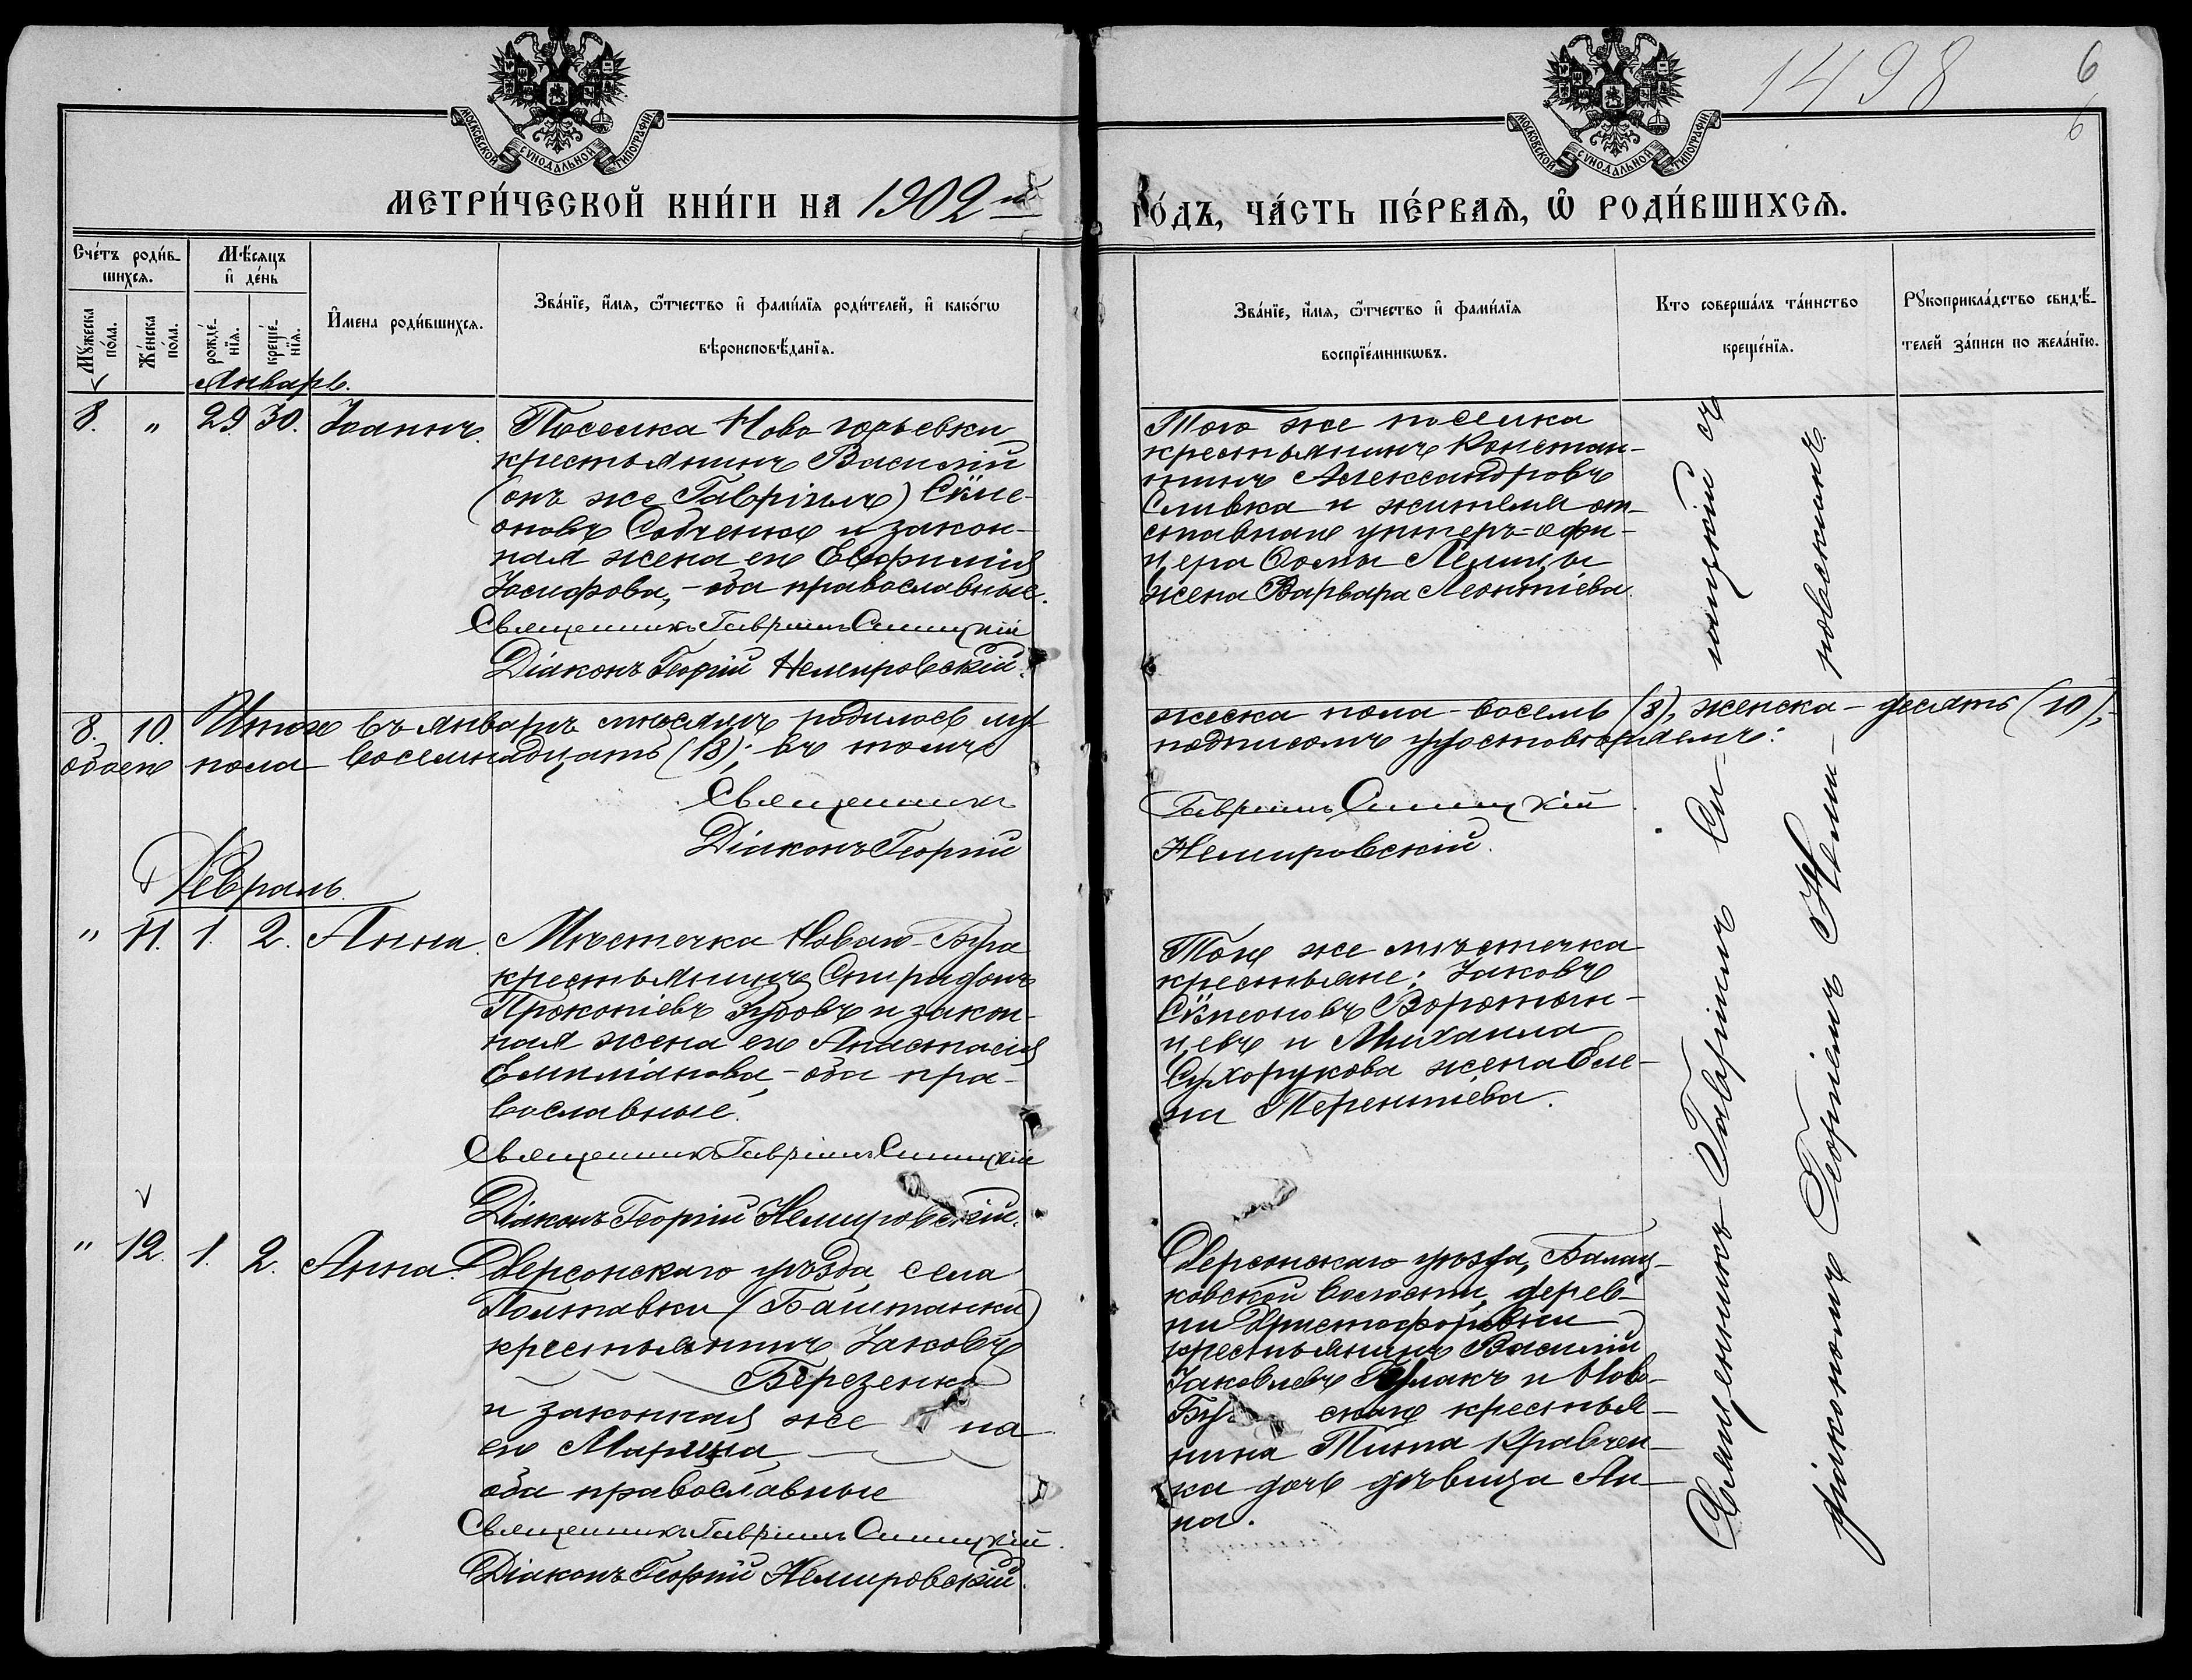 1498
6
6
МОСКОВСКОЙ СѴНОДАЛЬНОЙ ТИПОГРАФІИ
МОСКОВСКОЙ СѴНОДАЛЬНОЙ ТИПОГРАФІИ
МЕТРИ́ЧЕСКОЙ КНИ́ГИ НА 1902 й
ГО́ДЪ, ЧА́СТЬ ПЕ́РВАЯ, Ѡ РОДИ́ВШИХСЯ.
Сче́тъ роди́в-
шихся.
Мꙋ́жеска по́ла.
Же́нска по́ла.
Мѣ́сяцъ
и҆ де́нь
рожде́-
нїя.
креще́-
нїя.
И҆мена роди́вшихся.
Зва́нїе, и҆́мя, ѻ҆́тчество и҆ фами́лїя роди́телей, и҆ како́гѡ
вѣроисповѣ́данїя.
Зва́нїе, и҆́мя, ѻ҆́тчество и҆ фами́лїя
воспрїе́мникѡвъ.
Кто̀ соверша́лъ та́инство
креще́нїя.
Рꙋкоприкла́дство свидѣ́-
телей за́писи по жела́нїю.
Январь.
8. " 29. 30. Іоаннъ.
Поселка Ново юрьевки
крестьянинъ Василій
(онъ же Гавріилъ) Сѵме-
оновъ Собченко и закон-
ная жена его Евфимія
Іосифова, - оба православные.
Священникъ Гавріилъ Синицкій
Діаконъ Георгій Немировскій.
Того же поселка
крестьянинъ Констан-
тинъ Александровъ
Сливка и жителя от-
ставнаго унтеръ-офи-
цера Ѳомы
жена Варвара Леонтіева
8. 10. Итого въ январѣ мѣсяцѣ родилось му-
жеска пола - восемь (8), женска - десять (10),
обоего пола восемнадцать (18); въ томъ
подписомъ удостовѣряемъ:
Священникъ
Гавріилъ Синицкій
Діаконъ Георгій
Немировскій.
Февраль.
" 11. 1. 2. Анна.
Мѣстечка Новаго-Буга
крестьянинъ Спиридонъ
Прокопіевъ и закон-
ная жена его Анастасія
Емиліанова, - оба пра-
вославные.
Священникъ Гавріилъ Синицкій
Діаконъ Георгій Немировскій.
Того же мѣстечка
крестьяне: Іаковъ
Сѵмеоновъ Воротын-
цевъ и Михаила
Сухорукова жена Еле-
на Терентіева.
" 12. 1. 2. Анна.
Херсонскаго уѣзда, села
Полтавки (Баштанки)
крестьянинъ Іаковъ
Березенко
и законная же на
его Марина
оба православные
Священникъ Гавріилъ Синицкій.
Діаконъ Георгій Немировскій.
Херсонскаго уѣзда, Балац-
ковской волости, дерев-
ни Христофоровки
крестьянинъ Василій
Іаковлевъ и Ново-
Буг скаго крестья-
нина Кравчен-
ка дочь дѣвица Ан-
на.
Священникъ Гавріилъ Си- ницкій съ
діакономъ Георгіемъ Неми- ровскимъ.